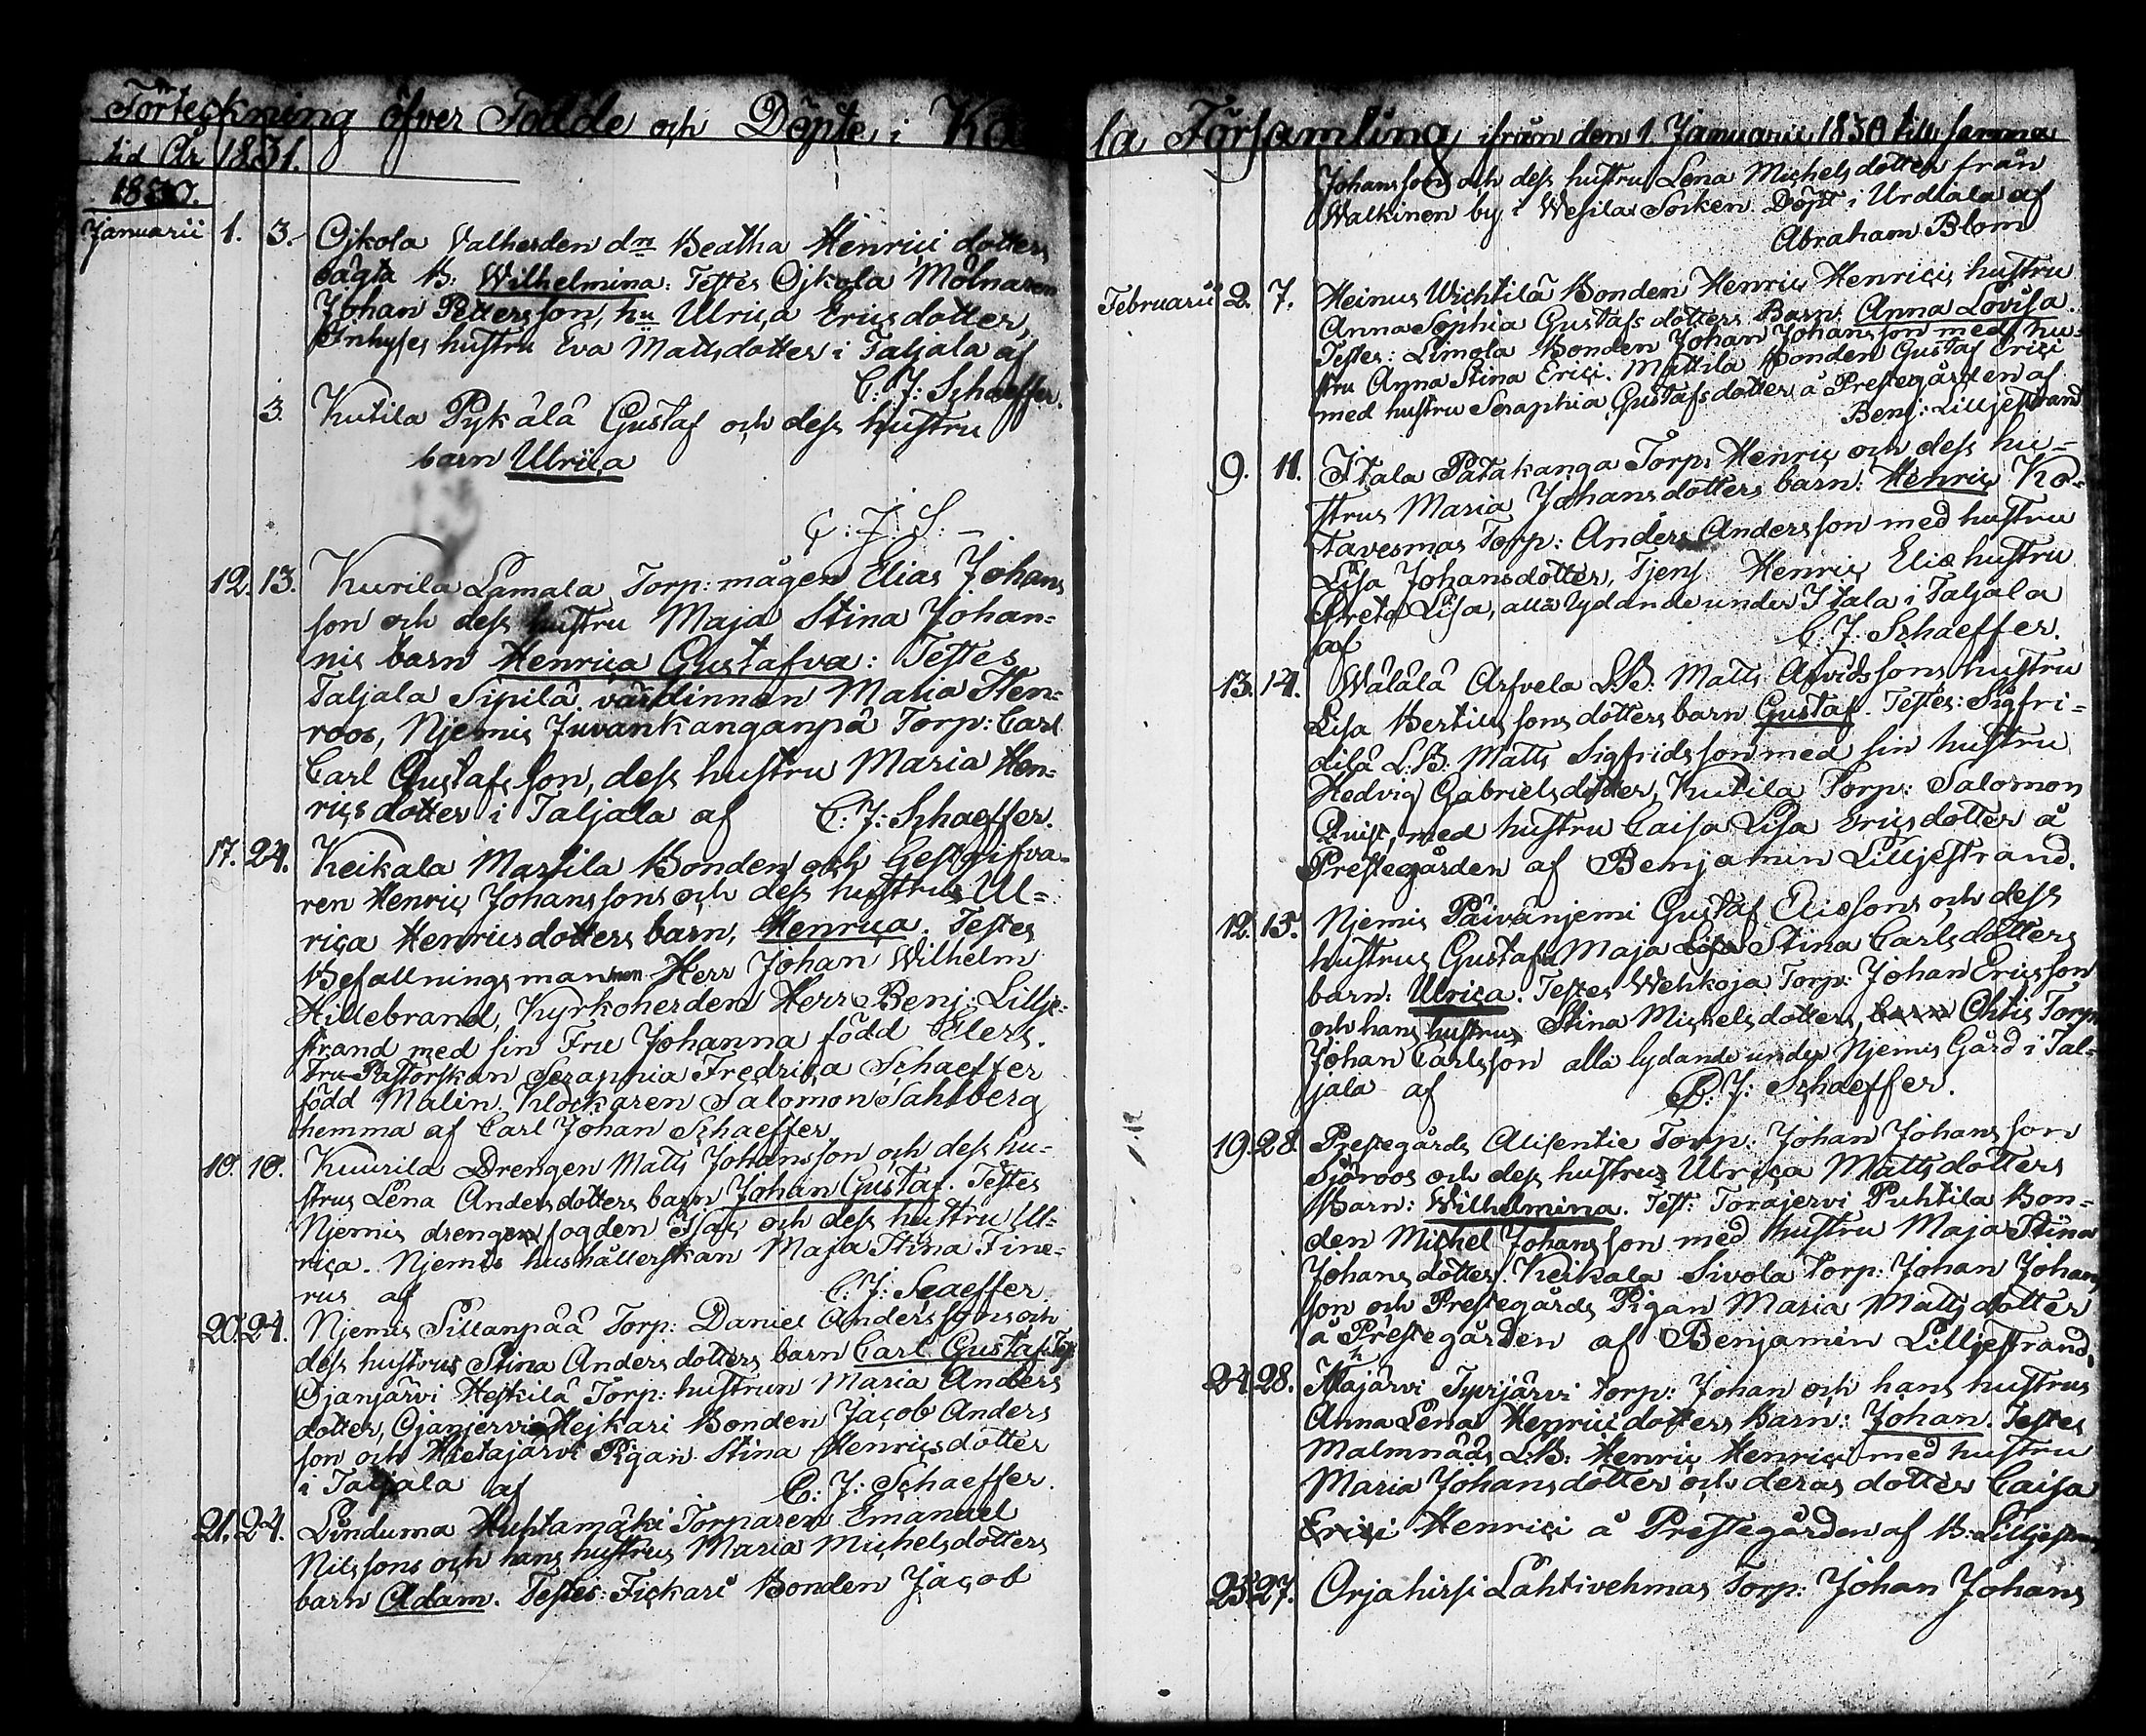 Förteckning öfver Födde och Döpte i Ka
tid År 1831.
1830.
Januarii 1. 3. Ojkola Valherden dn Beatha Henrici dotters
oägta B: Wilhelmina: Testes Ojkola Mölnaren
Johan Pettersson, hu Ulrica Ericsdotter,
Inhyses hustru Eva Mattsdotter i Taljala af
C: J: Schaeffer.
3. Kutila Pykälä Gustaf och dess hustru
barn Ulrica
C: J: S: –
12. 13. Kurila Lamala Torp: mågen Elias Johans
son och dess hustru Maja Stina Johan=
nis barn Henrica Gustafva: Testes
Taljala Sipilä värdinnan Maria Sten=
roos, Njemis Juvankanganpä Torp: Carl
Carl Gustafsson, dess hustru Maria Hen=
ricsdotter i Taljala af C: J: Schaeffer.
17. 24. Keikala Martila Bonden och Gestgifva=
ren Henric Johanssons och dess hustrus Ul=
rica Henricsdotters barn, Henrica. Testes
Befallningsmannen Herr Johan Wilhelm
Hillebrand, Kyrkoherden Herr Benj: Lillje=
strand med sin Fru Johanna född Elers.
Fru Pastorskan Seraphia Fredrica Schaeffer
född Malin. Klockaren Salomon Sahlberg
hemma af Carl Johan Schaeffer
10. 10. Kuurila Drengen Matts Johansson och dess hu=
strus Lena Andersdotters barn Johan Gustaf. Testes
Njemis drengen fogden Isac och dess hustru Ul=
rica. Njemis hushållerskan Maja Stina Fine=
rus af C: J: Scaeffer
20. 24. Njemis Sillanpää Torp: Daniel Anderssons och
dess hustrus Stina Andersdotters barn Carl Gustaf. Test:
Ojanjärvi Hejkilä Torp: hustrun Maria Anders
dotter, Ojanjervi Hejkari Bonden Jacob Anders
son och Hietajärvi Pigan Stina Henricsdotter
i Taljala af C: J: Schaeffer.
21. 24. Linduma Huhtamäki Torparen Emanuel
Nilssons och hans hustrus Maria Michelsdotters
barn Adam. Testes: Fickari Bonden Jacob
la Församling ifrån den 1. Januarii 1830 till samma
Johansson och dess hustru Lena Michelsdotter från
Walkinen by i Wesilax Socken. Döpt i Urdiala af
Abraham Blom
Februarii 2. 7. Heinus Wichtilä Bonden Henric Henricis hustru
Anna Sophia Gustafs dotters Barn: Anna Lovisa.
Testes: Limola Bonden Johan Johansson med hu=
stru Anna Stina Erici. Mattila Bonden Gustaf Erici
med hustru Seraphia Gustafsdotter å Prestegården af
Benj: Lilljestrand
9. 11. Itala Patakanga Torp. Henric och dess hu=
strus Maria Johansdotters barn: Henric Ko=
tavesmas Torp: Anders Andersson med hustru
Lisa Johansdotter, Tjens Henric Eliæ hustru
Greta Lisa, alla lydande under Itala i Taljala
af C. J. Schaeffer.
13. 14. Wälälä Arfvela L:B: Matts Arvidssons hustru
Lisa Bertilssons dotters barn Gustaf. Testes: Sigfri=
dilä L:B: Matts Sigfridsson med sin hustru
Hedvig Gabrielsdotter, Kutila Torp: Salomon
Quist, med hustru Caisa Lisa Ericsdotter å
Prestegården af Benjamin Lilljestrand.
12. 15. Njemis Päivänjemi Gustaf Eliæssons och dess
hustrus Gustafva Maja Lisa Stina Carlsdotters
barn: Ulrica. Testes Wehkoja Torp: Johan Ericsson
och hans hustrus Stina Michelsdotters, barn Ohtis Torp
Johan Carlsson alla lydande under Njemis Gård i Tal=
jala af C. J: Schaeffer.
19. 28. Prestegårds Alisentie Torp: Johan Johansson
Sjöroos och dess hustrus Ulrica Mattsdotters
Barn: Wilhelmina. Test: Torajervi Puhtila Bon=
den Michel Johansson med hustru Maja Stina
Johansdotter. Keikala Sivola Torp: Johan Johans
son och Prestegårds Pigan Maria Mattsdotter
å Prestegården af Benjamin Lilljestrand.
24. 28. Majärvi Tyrijärvi torp: Johan och hans hustrus
Anna Lena Henricidotters Barn: Johan. Testes
Malmnäds L:B: Henric Henrici med hustru
Maria Johansdotter och deras dotter Caisa
Erici Henrici å Prestegården af B: Lilljestran
25. 27. Orjahirsi Lahtivehmas Torp: Johan Johans